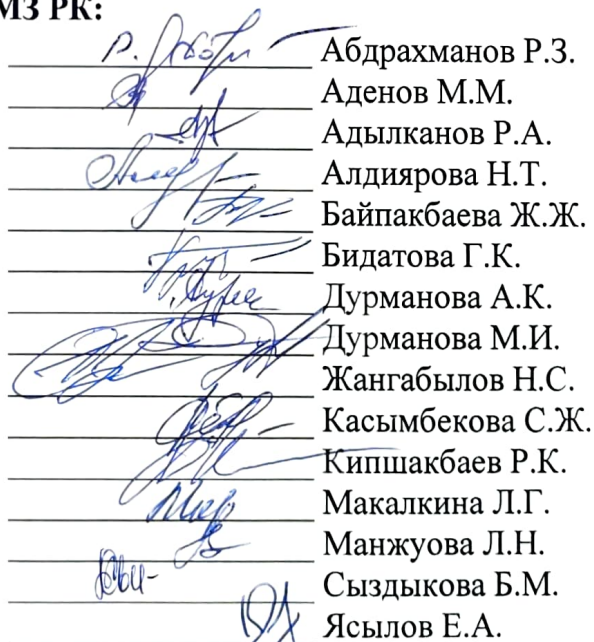 МЗ РК:
Абдрахманов Р.З.
Аденов М.М.
Адылканов Р.А.
Алдиярова Н.Т.
Байпакбаева Ж.Ж.
Бидатова Г.К.
Дурманова А.К.
Дурманова М.И.
Жангабылов Н.С.
Касымбекова С.Ж.
Кипшакбаев Р.К.
Макалкина Л.Г.
Манжуова Л.Н.
Сыздыкова Б.М.
Ясылов Е.А.